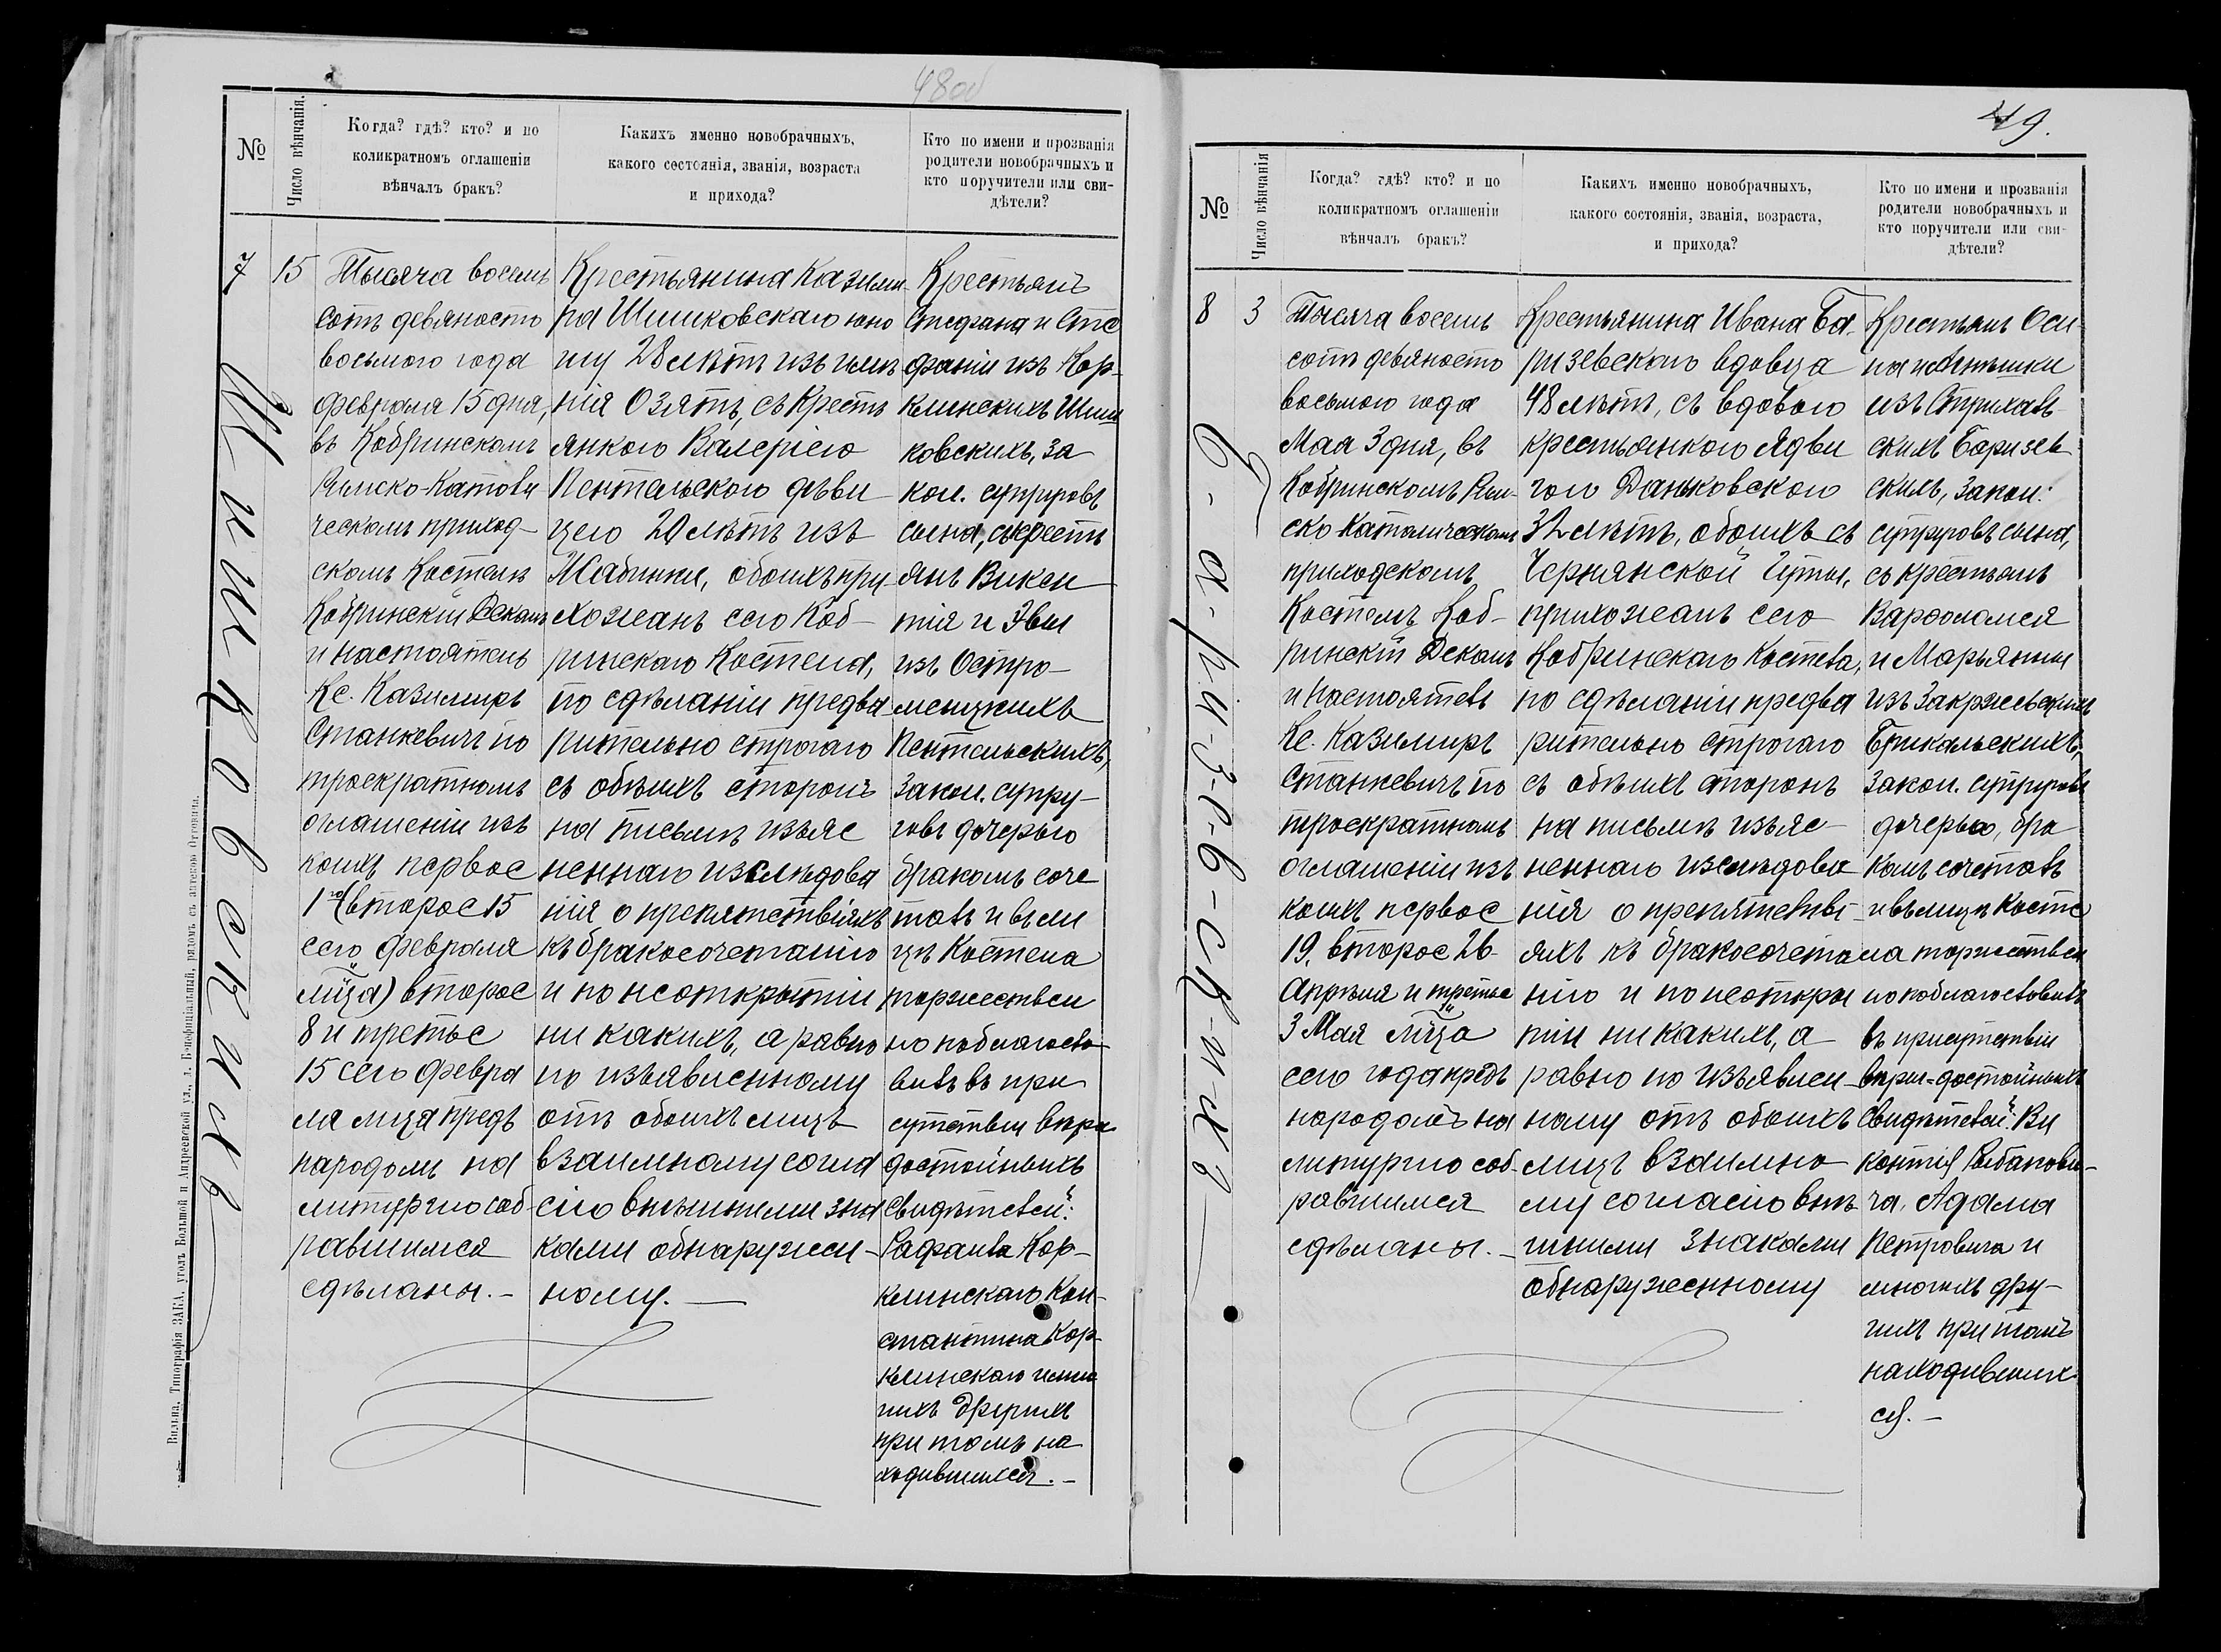 48об
№
Число вѣнчанія.
Когда? гдѣ? кто? и по
коликратномъ оглашеніи
вѣнчалъ бракъ?
Какихъ именно новобрачныхъ,
какого состоянія, званія, возраста
и прихода?
Кто по имени и прозванія
родители новобрачныхъ и
кто поручители или сви-
дѣтели?
7
15
Шишковскихъ
Тысяча восемь
сотъ девяносто
восьмого года
февраля 15 дня,
въ Кобринскомъ
Римско-Каточи
ческомъ приход-
скомъ Костелѣ
Кобринскій Деканъ
и Настоятель
Кс. Казимиръ
Станкевичъ по
троекратномъ
оглашеніи изъ
коихъ первое
1го (второе 15
сего февраля
мѣца) второе
8 и третье
15 сего февра
ля мѣца предъ
народомъ на
литургію соб-
равшимся
сдѣланы.-
Крестьянина Казими-
ра Шишковскаго юно
шу 28 лѣтъ изъ имѣ
нія Озятъ, съ Кресть
янкою Валеріею
Пентельскою дѣви
цею 20 лѣтъ изъ
Жабинки, обоихъ при-
хожанъ сего Коб-
ринскаго Костела,
по сдѣланіи предва
рительно строгаго
съ обѣихъ сторонъ
на письмѣ изъяс
неннаго изслѣдова
нія о препятствіяхъ
къ бракосочетанію
и по неоткрытіи
ни какихъ, а равно
по изъявленному
отъ обоихъ лицъ
взаимному согла
сію внѣшними зна
ками обнаружен-
ному.-
Крестьянъ
Стефана и Сте
фаніи изъ Кор-
клинскихъ Шиш
ковскихъ, за
кон. супруговъ
сына, съ крестъ
янъ Викен
тія и Эвы
изъ Остро-
менцкихъ
Пентельскихъ,
закон. супру-
говъ дочерью
бракомъ соче
талъ и въ ли
цѣ Костела
торжествен
но поблагосло-
вилъ въ при
сутствіи вѣро
достойныхъ
Свидѣтелей:
Рафаила Кор-
клинскаго Кон-
стантина Кор-
клинскаго и мно
гихъ другихъ
при томъ на
ходившихся.-
Вильна, Типографія ЗАКА, уголъ Большой и Андреевской ул., д. Бонифаціальный, рядомъ съ аптекою
49.
№
Число вѣнчанія
Когда? гдѣ? кто? и по
коликратномъ оглашеніи
вѣнчалъ бракъ?
Какихъ именно новобрачныхъ,
какого состоянія, званія, возраста,
и прихода?
Кто по имени и прозванія
родители новобрачныхъ и
кто поручители или сви-
дѣтели?
8
3
Б-а-ри-з-е-в-ск-и-хъ
Тысяча восемь
сотъ девяносто
восьмого года
Мая 3 дня, въ
Кобринскомъ Рим-
ско Католическомъ
приходскомъ
Костелѣ Коб-
ринскій Деканъ
и Настоятель
Кс. Казимиръ
Станкевичъ по
троекратномъ
оглашеніи изъ
коихъ первое
19, второе 26-
Апрѣля и третье
3 Мая мѣца
сего года предъ
народомъ на
литургію соб-
равшимся
сдѣланы.-
Крестьянина Ивана Ба-
ризевскаго вдовца
48 лѣтъ, съ вдовою
крестьянкою Ядви
гою Даньковскою
32 лѣтъ, обоихъ съ
Чернянской Гуты,
прихожанъ сего
Кобринскаго Костела,
по сдѣланіи предва
рительно строгаго
съ обѣихъ сторонъ
на письмѣ изъяс-
неннаго изслѣдова
нія о препятстві-
яхъ къ бракосочета
нію и по неоткры
тіи ни какихъ, а
равно по изъявлен-
ному отъ обоихъ
лицъ взаимно-
му согласію внѣ-
шними знаками
обнаруженному
Крестьянъ Оси-
па и Антонины
изъ Стрихаль-
скихъ Баризев
скихъ, закон:
супруговъ сына,
съ крестьянъ
Варфоломея
и Марьянны
изъ Закржевскихъ
закон. супруговъ
дочерью, бра
комъ сочеталъ
и въ лицѣ Косте
ла торжествен
но поблагословилъ
въ присутствіи
вѣро-достойныхъ
Свидѣтелей: Ви
кентія
ча, Адама
Петровича и
многихъ дру-
гихъ при томъ
находившихъ
ся.-